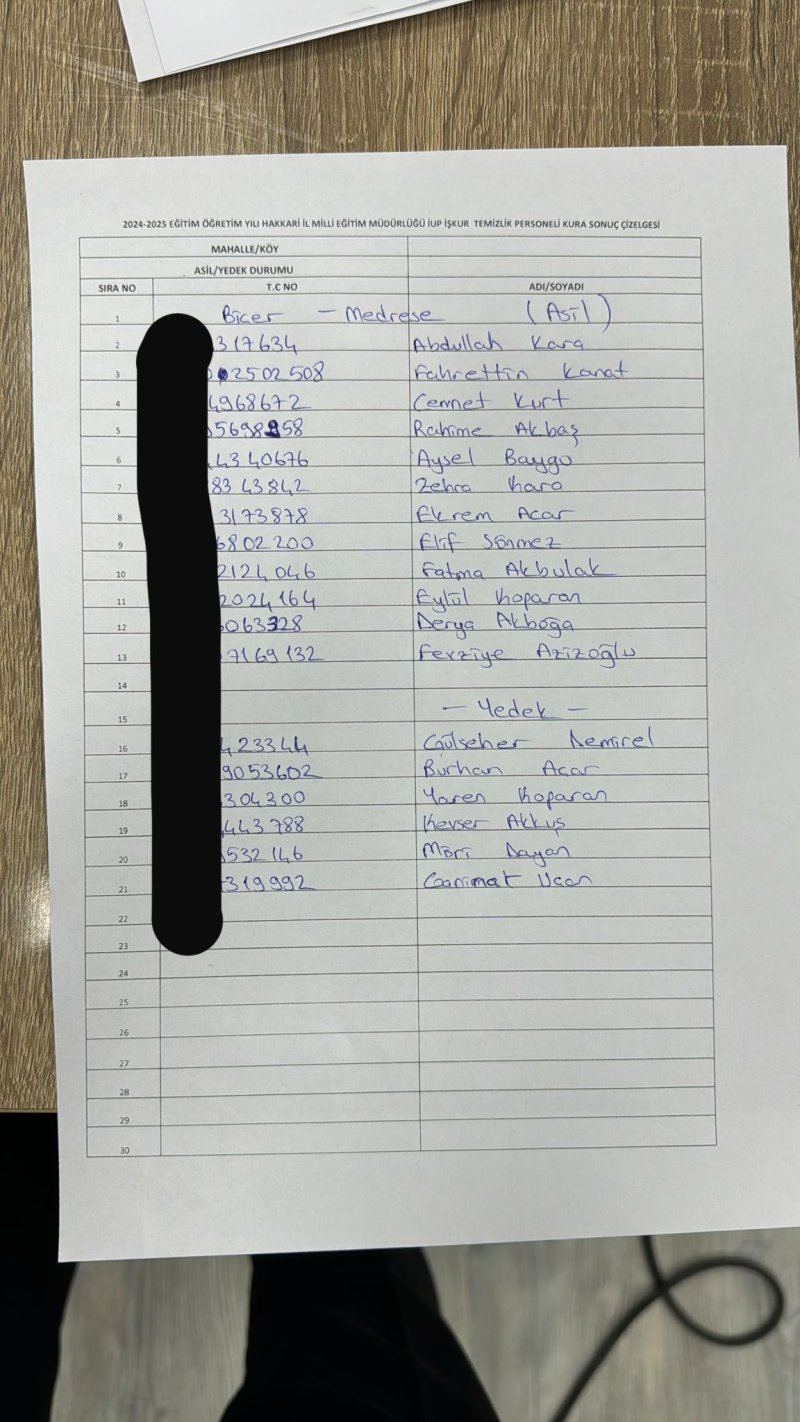 2024-2025 EĞİTİM ÖĞRETİM YILI HAKKARİ İL MİLLİ EĞİTİM MÜDÜRLÜĞÜ İUP İŞKUR TEMİZLİK PERSONELİ KURA SONUÇ ÇİZELGESİ
MAHALLE/KÖY
ASİL/YEDEK DURUMU
SIRA NO T.C NO ADI/SOYADI
1 Biçer - Medrese (Asil)
2 317634 Abdullah Kara
3 2502508 Fahrettin Kanat
4 4968672 Cennet Kurt
5 5698958 Rahime Akbaş
6 4340676 Aysel Baygo
7 8343842 Zehra Kara
8 3173878 Ekrem Acar
9 6802200 Elif Sönmez
10 2124046 Fatma Akbulak
11 2024164 Eylül Koparan
12 063328 Derya Akboğa
13 7169132 Ferziye Azizoğlu
14
15 - Yedek -
16 423344 Gülseher Demirel
17 9053602 Burhan Acar
18 304300 Yaren Koparan
19 443788 Kevser Akkuş
20 532146 Mori Dayan
21 319992 Ganimat Ucan
22
23
24
25
26
27
28
29
30